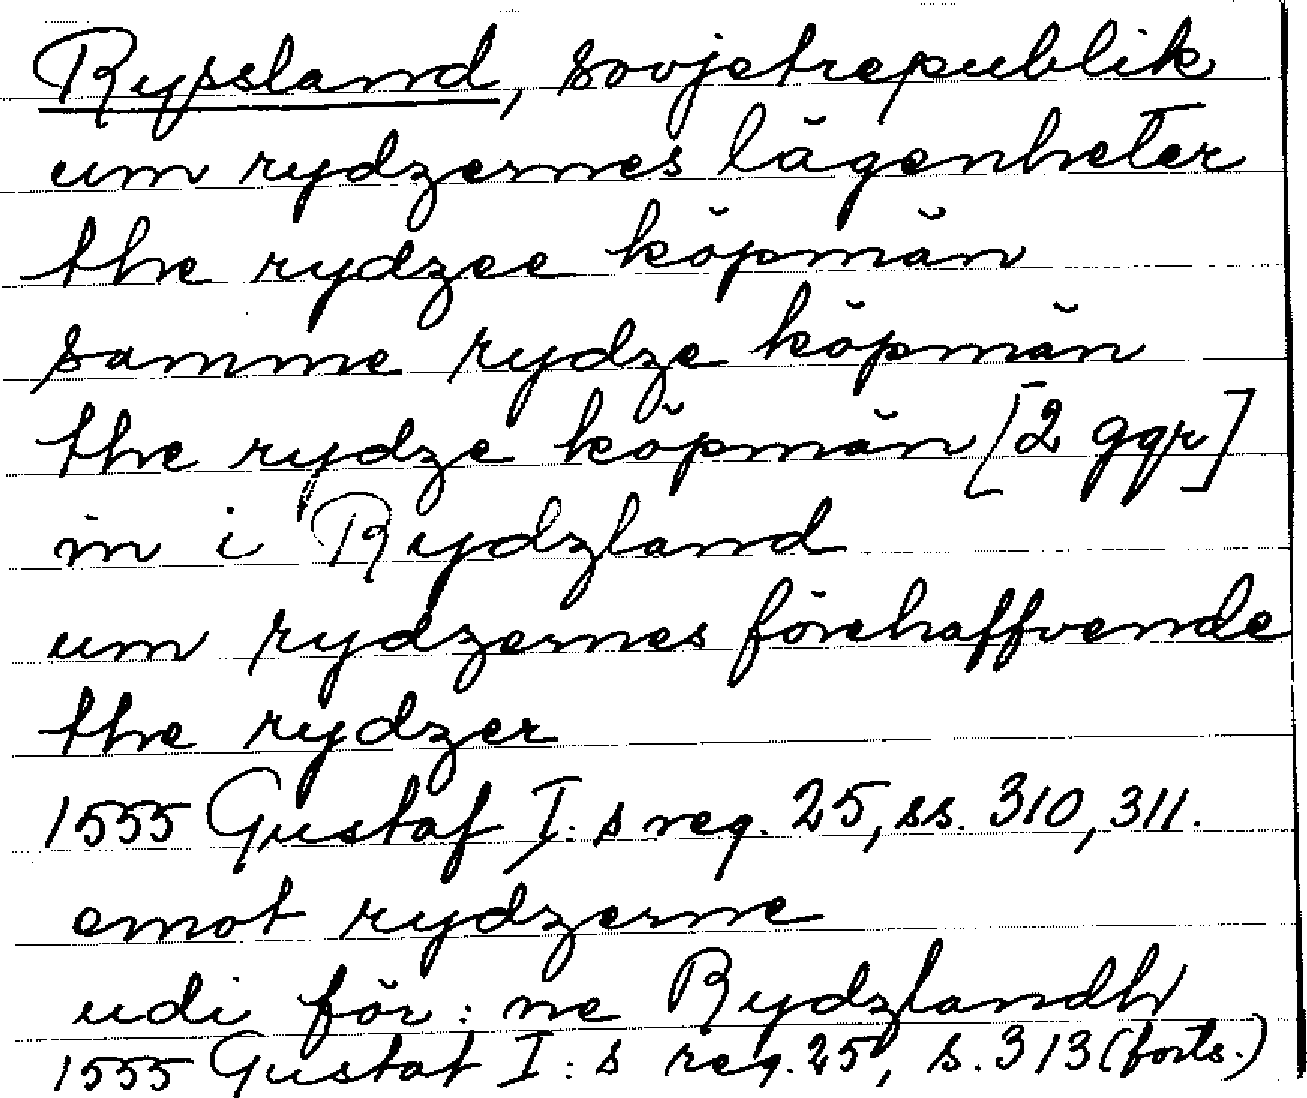 Ryssland, sovjetrepublik
um rydzernes lägenheter
the rydzee köpmän
samme rydze köpmän
the rydze köpmän [2 ggr]
in i Rydzland
um rydzernes förehaffvende
the rydzer
1555 Gustaf I:s reg. 25, ss. 310, 311.
emot rydzerne
udi för:ne Rydzlandh
1555 Gustaf I:s reg. 25, s. 313 (forts.)